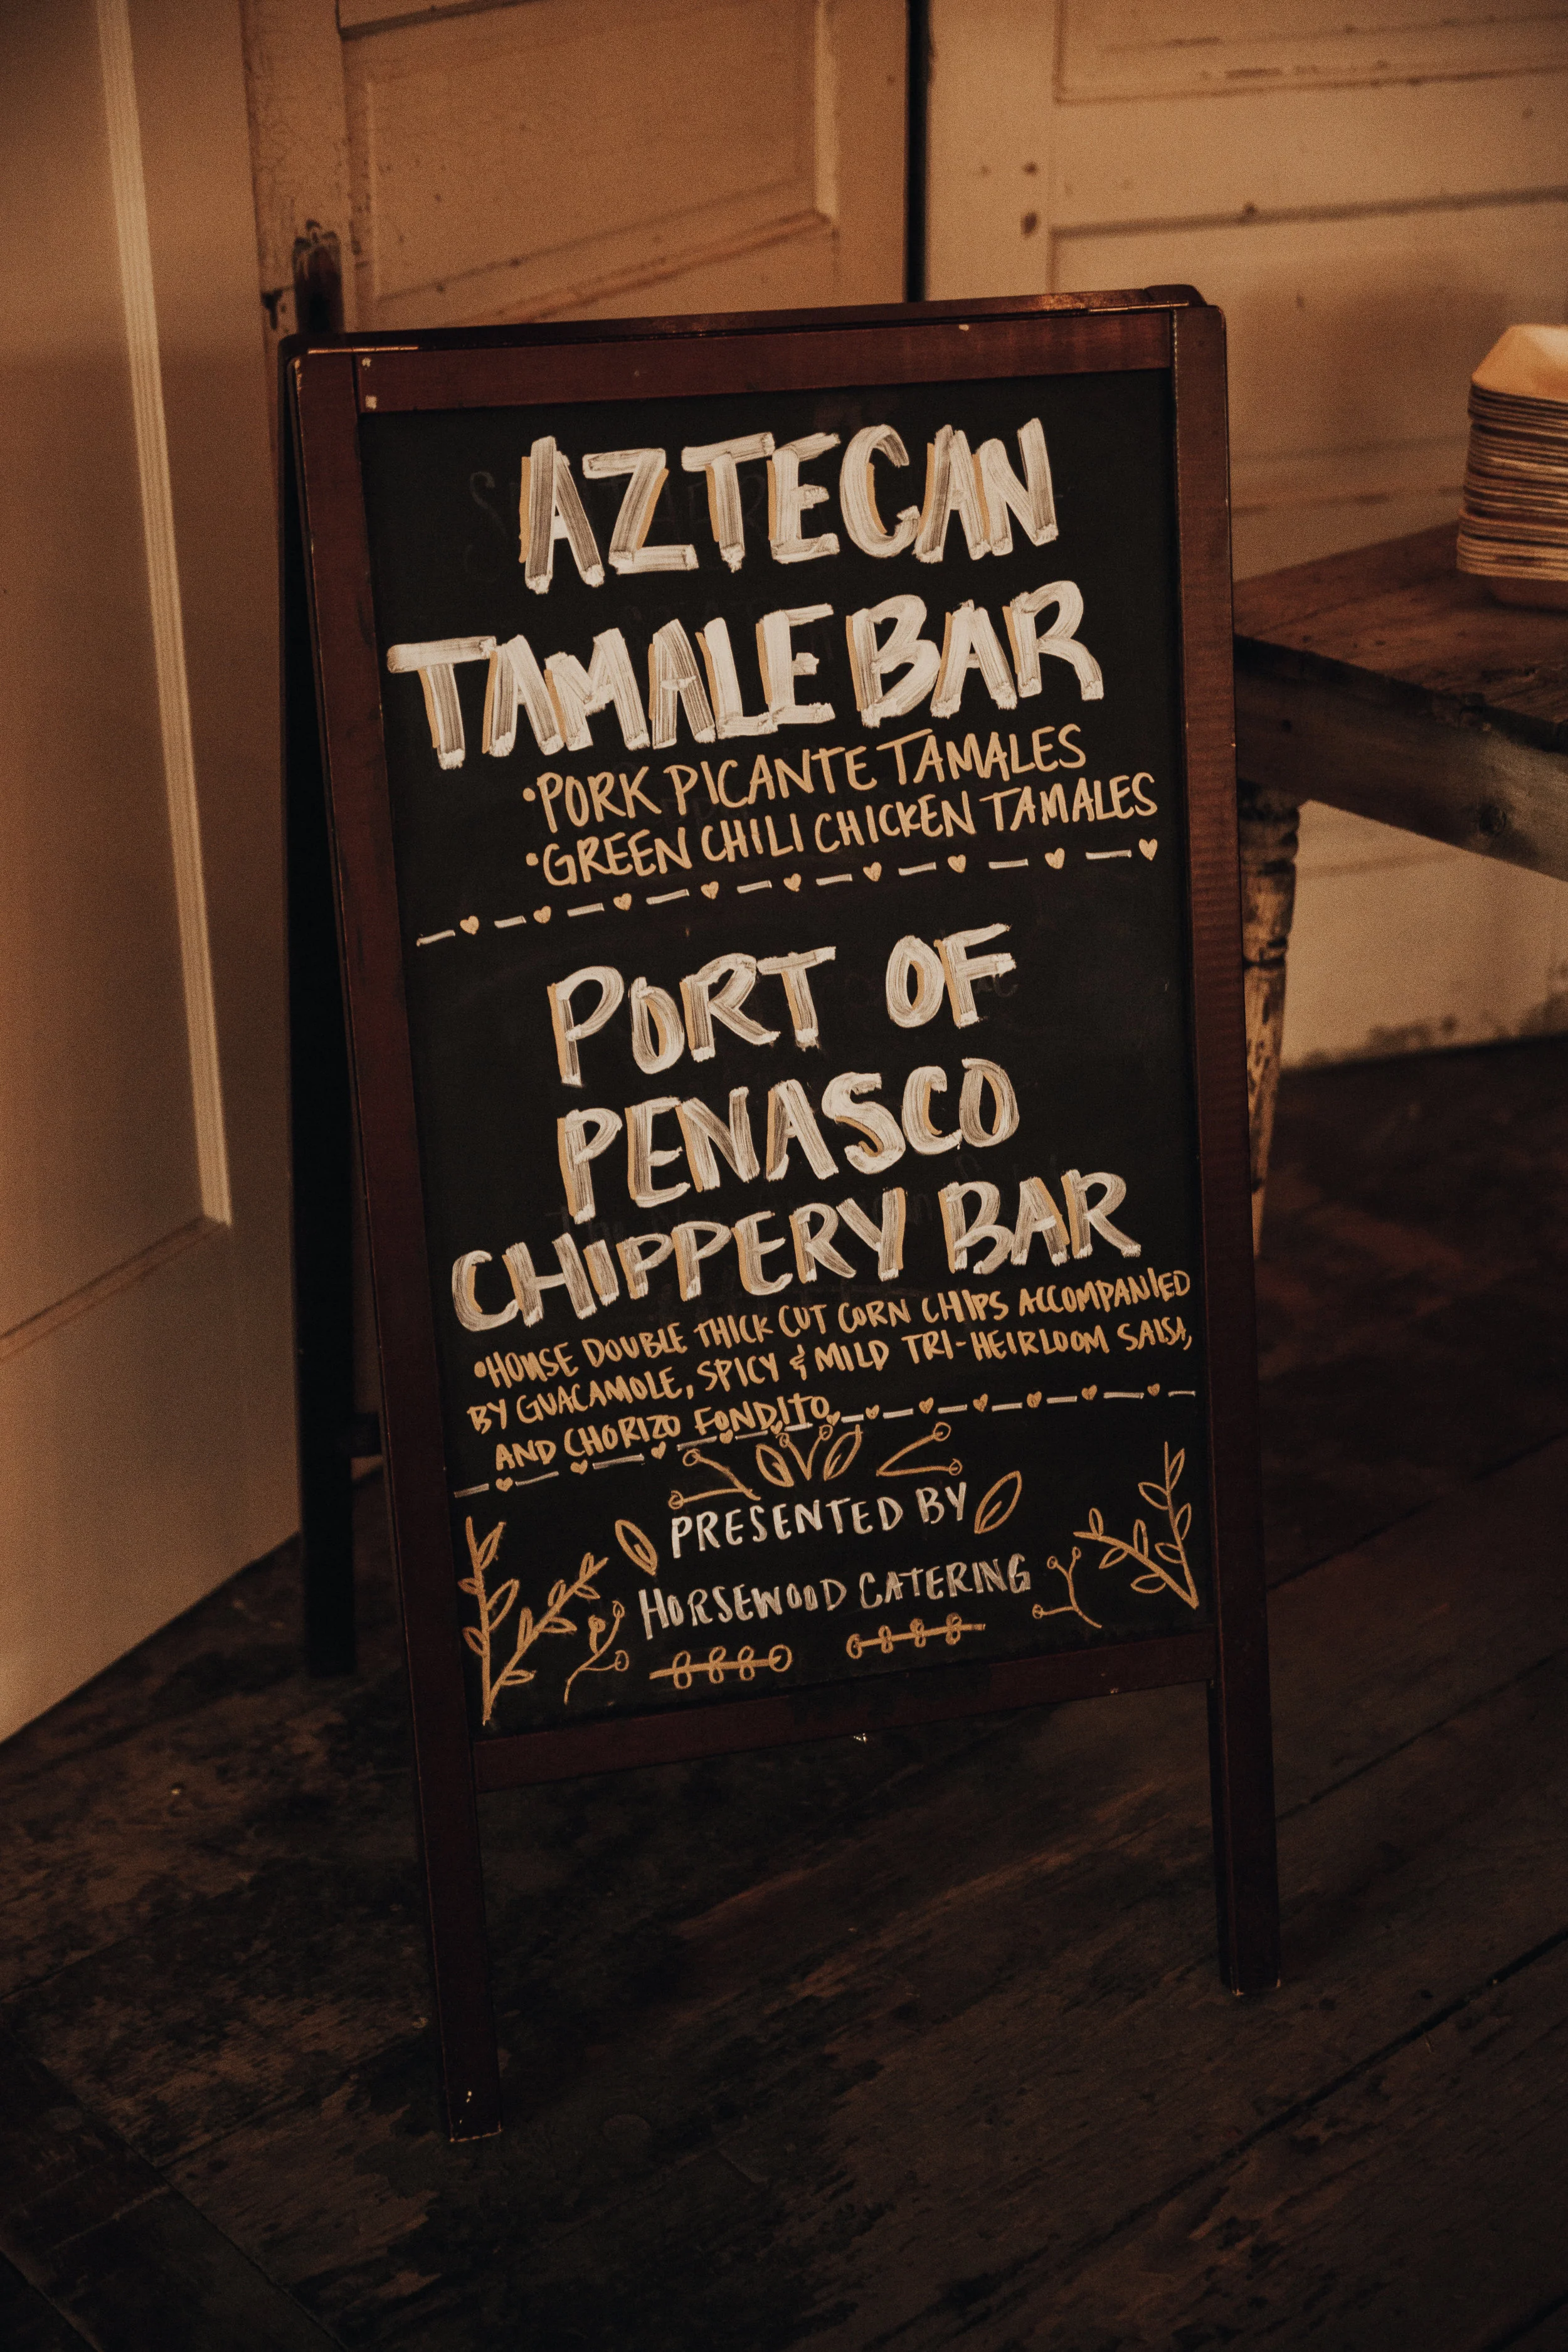 AZTECAN
TAMALE BAR
•PORK PICANTE TAMALES
•GREEN CHILI CHICKEN TAMALES
PORT OF
PENASCO
CHIPPERY BAR
•HOUSE DOUBLE THICK CUT CORN CHIPS ACCOMPANIED
BY GUACAMOLE, SPICY & MILD TRI-HEIRLOOM SALSA,
AND CHORIZO FONDITO
PRESENTED BY
HORSEWOOD CATERING